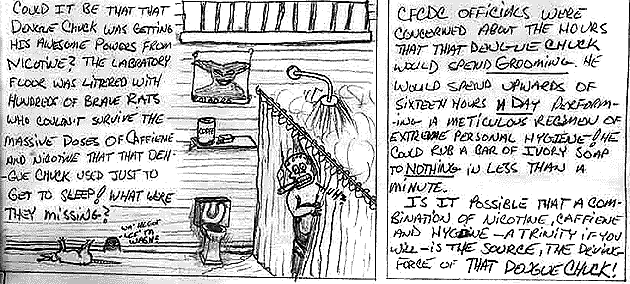 COULD IT BE THAT THAT
DENGUE CHUCK WAS GETTING
HIS AWESOME POWERS FROM
NICOTINE? THE LABRATORY
FLOOR WAS LITTERED WITH
HUNDREDS OF BRAVE RATS
WHO COULDN'T SURVIVE THE
MASSIVE DOSES OF CAFFIENE
AND NICOTINE THAT THAT DEN-
GUE CHUCK USED JUST TO
GET TO SLEEP! WHAT WERE
THEY MISSING?
COFFEE
CFCDC OFFICIALS WERE
CONCERNED ABOUT THE HOURS
THAT THAT DENGUE CHUCK
WOULD SPEND GROOMING. HE
WOULD SPEND UPWARDS OF
SIXTEEN HOURS A DAY PERFORM-
ING A METICULOUS REGIMEN OF
EXTREME PERSONAL HYGIENE! HE
COULD RUB A BAR OF IVORY SOAP
TO NOTHING IN LESS THAN A
MINUTE.
IS IT POSSIBLE THAT A COM-
BINATION OF NICOTINE, CAFFIENE
AND HYGIENE - A TRINITY IF YOU
WILL - IS THE SOURCE, THE DRIVING
FORCE OF THAT DENGUE CHUCK!